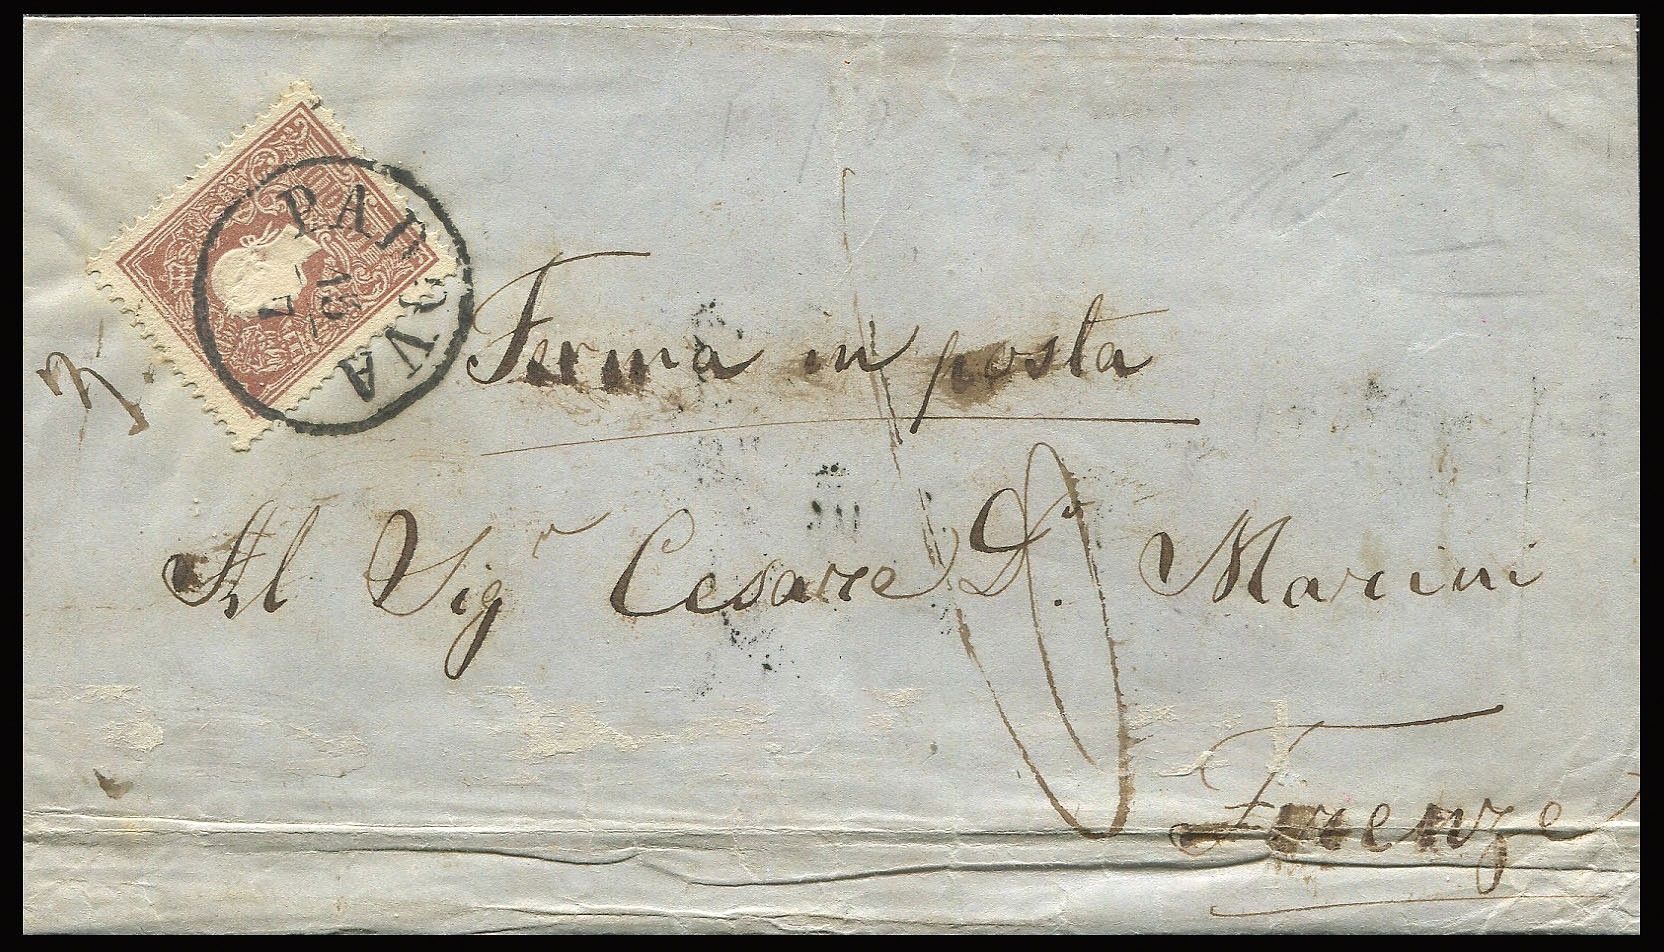 PADOVA
Ferma in posta
Al Sigr Cesare Dr. Marini
Firenze